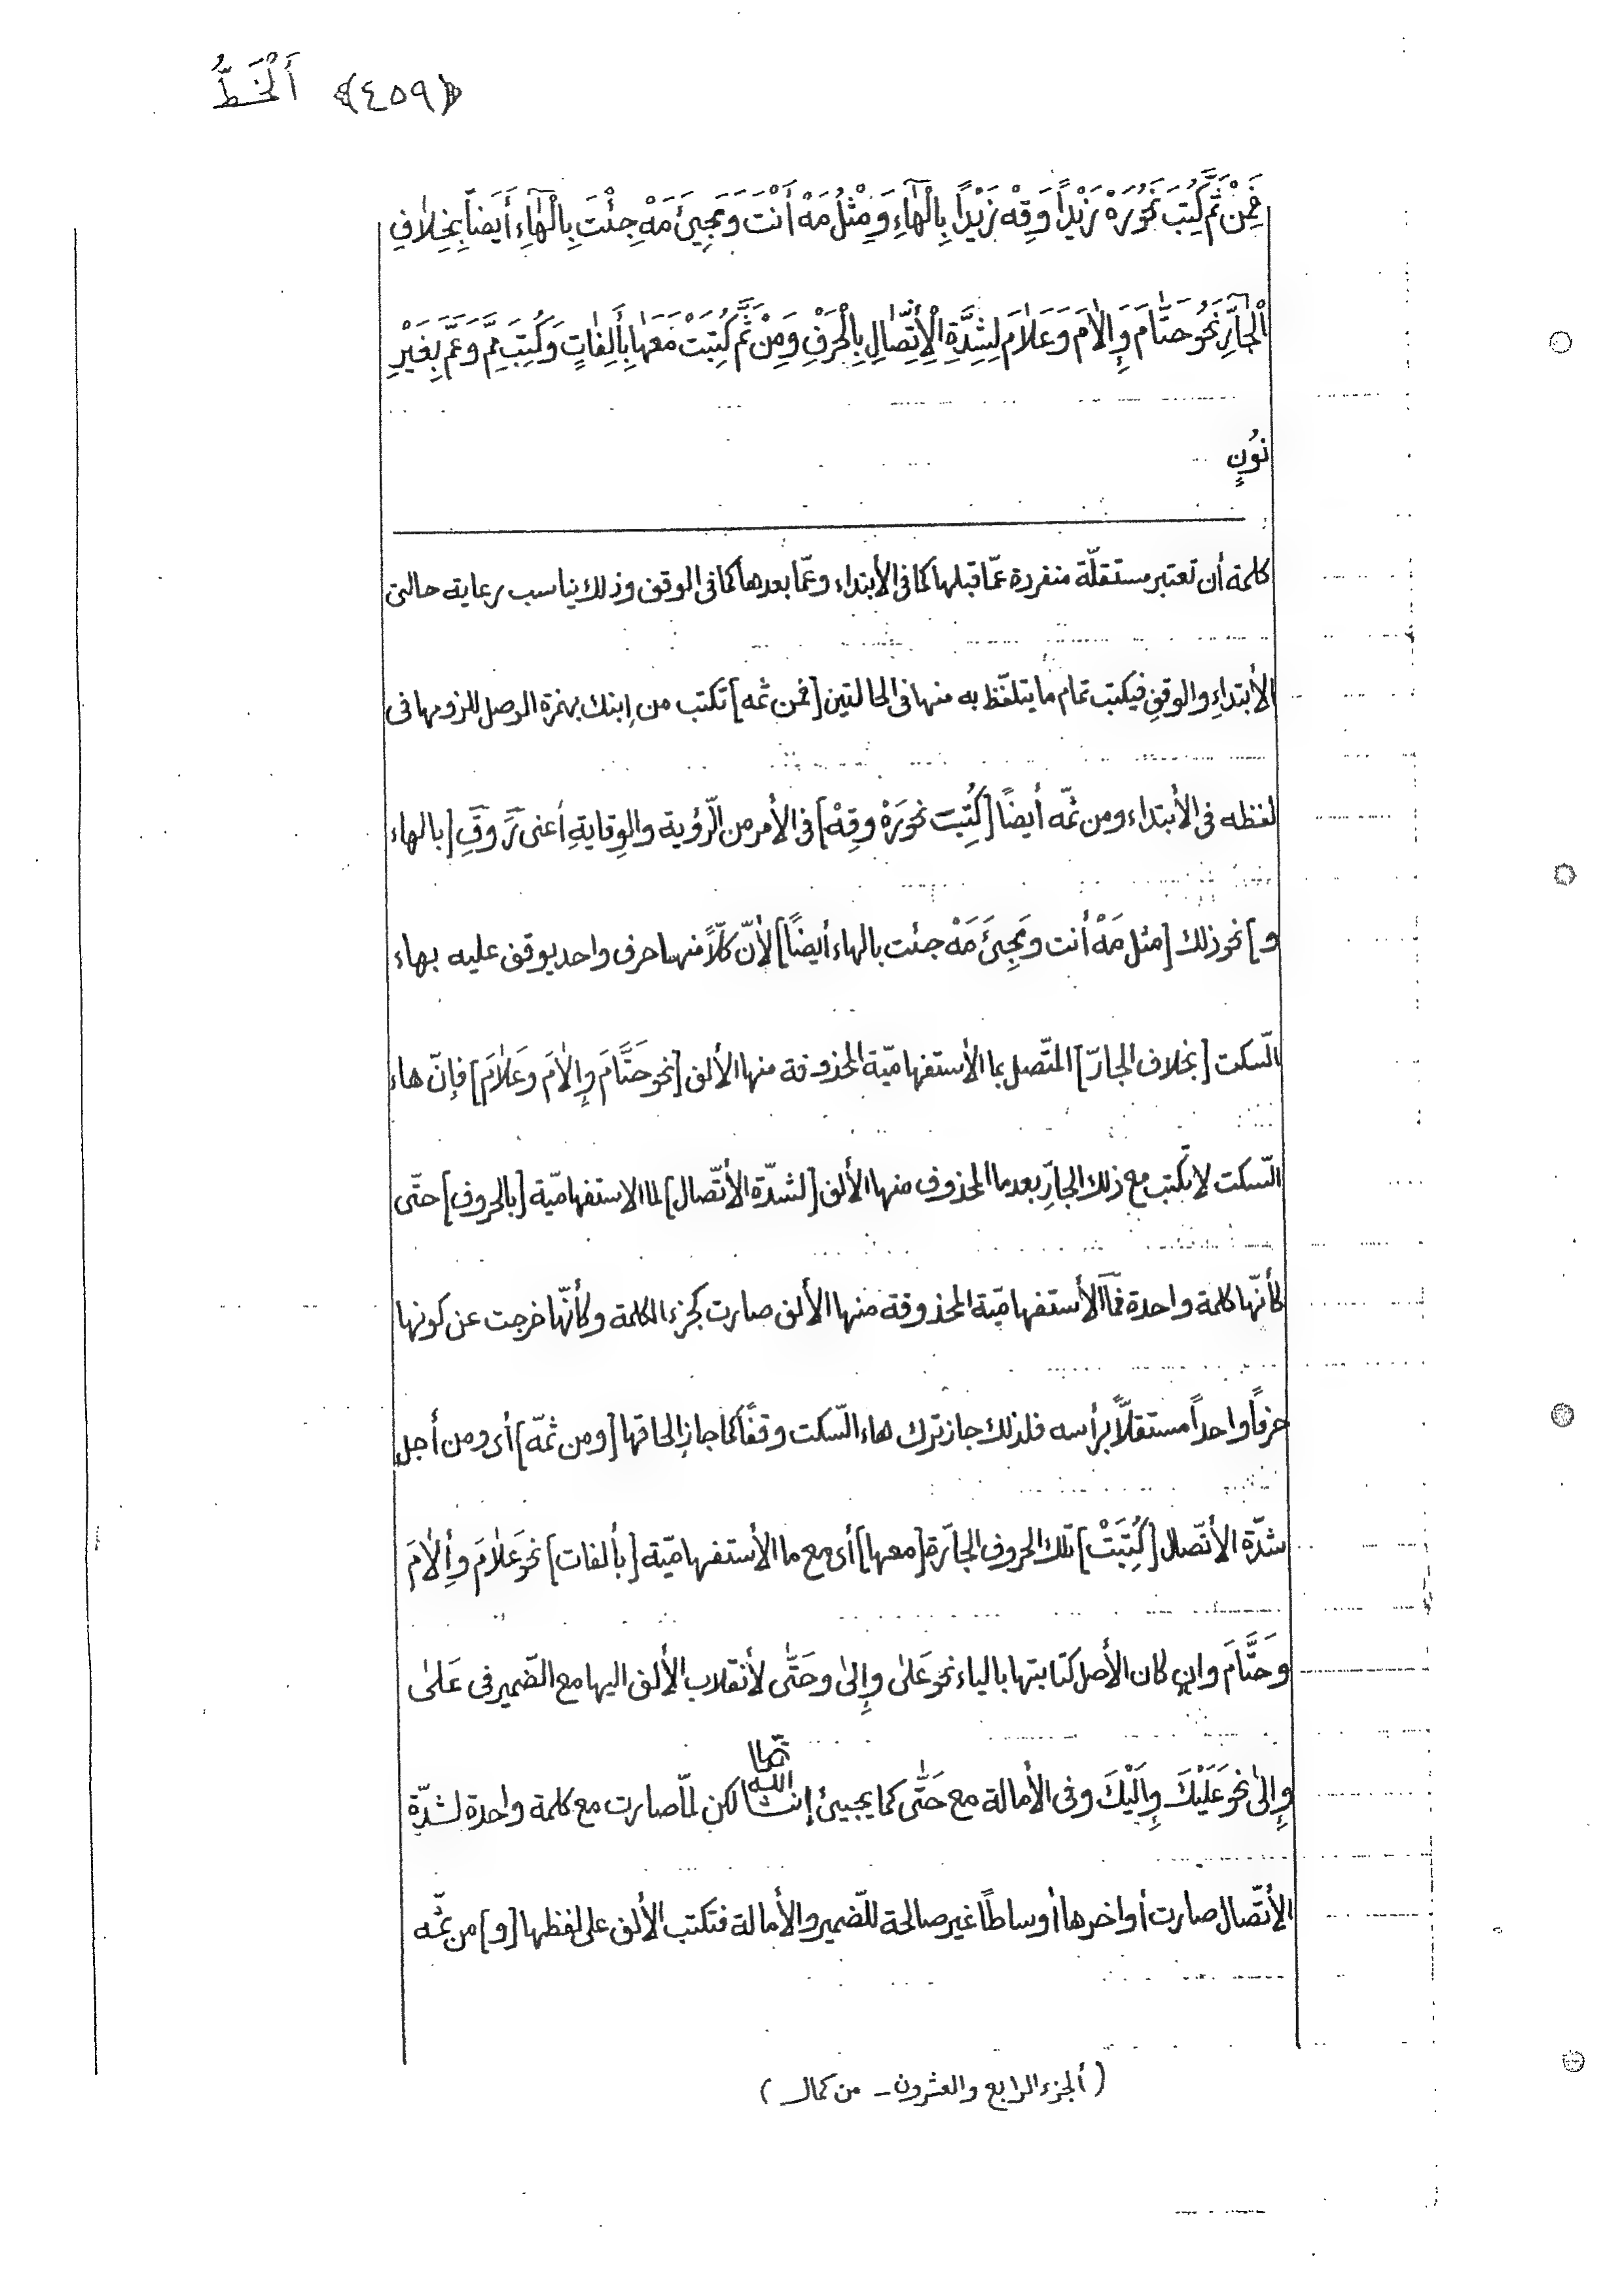 ﴿٤٥٩﴾ اَلْخَطُّ
فَمِنْ ثَمَّ كُتِبَ نَحْوُ رَهْ زَيْداً وَقِهْ زَيْداً بِالْهَاءِ وَمِثْلُ مَهْ أَنْتَ وَمَجِيءَ مَهْ جِئْتَ بِالْهَاءِ أَيضاً بِخِلَافِ
اَلْجَارِّ نَحْوُ حَتَّامَ وَإِلَامَ وَعَلَامَ لِشِدَّةِ الْأِتِّصَالِ بِالْحَرْفِ وَمِنْ ثَمَّ كُتِبَتْ مَعَهَا بِأَلِفَاتٍ وَكُتِبَ مِمَّ وَعَمَّ بِغَيْرِ
نُونٍ
كلمة أن تعتبر مستقلّة منفردة عمّا قبلها كما فى الأبتداء وعمّا بعدها كما فى الوقف وذلك يناسب رعاية حالتى
الأبتداءِ والوقفِ فيكتب تمام ما يتلفّظ به منها فى الحالتين [فمن ثمه] تكتب من اِبنك بهمزة الوصل للزومها فى
لفظه فى الأبتداء ومن ثمّه أيضًا [كُتِبَت نحورَهْ وقِهْ] فى الأمر من الرّؤية والوِقايةِ أعنى رَ وقِ [بالهاء
و] نحو ذلك [مثل مَهْ أنت ومَجِئَ مَهْ جئت بالهاء أيضًا] لأنّ كلّاً منها حرف واحد يوقف عليه بهاء
السّكت [بخلاف الجارّ] المتّصل بما الأستفهاميّة المحذوفة منها الألف [نحو حَتَّامَ وإِلامَ وعَلامَ] فإنّ هاء
السّكت لا تكتب مع ذلك الجارِّ بعد ما المحذوف منها الألف [لشدّة الأتّصال] لما الاستفهاميّة [بالحروف] حتّى
كأنّها كلمة واحدة فما الأستفهاميّة المحذوفة منها الألف صارت كجزء الكلمة وكأنّها خرجت عن كونها
حرفاً واحداً مستقلّاً برأسه فلذلك جاز ترك هاء السّكت وقفًا كما جاز إلحاقها [ومن ثمّه] أى ومن أجل
شدّة الأتّصال [كُتِبَتْ] تلك الحروف الجارّة [معها] أى مع ما الأستفهاميّة [بألفات] نحو عَلامَ وأِلامَ
وحَتَّامَ وان كان الأصل كتابتها بالياء نحو عَلىٰ وإلىٰ وحَتَّى لأنقلاب الألف اليها مع الضّمير فى عَلىٰ
وإلىٰ نحو عَلَيْكَ وإِلَيْكَ وفى الأمالة مع حَتَّى كما يجيئ إنشاالله تعالى لكن لمّا صارت مع كلمة واحدة لشدّة
الأتّصال صارت أواخرها أوساطاً غير صالحة للضّمير والأمالة فتكتب الألف على لفظها [و] من ثمّه
(ألجزء الرابع والعشرون ـ من كمال)